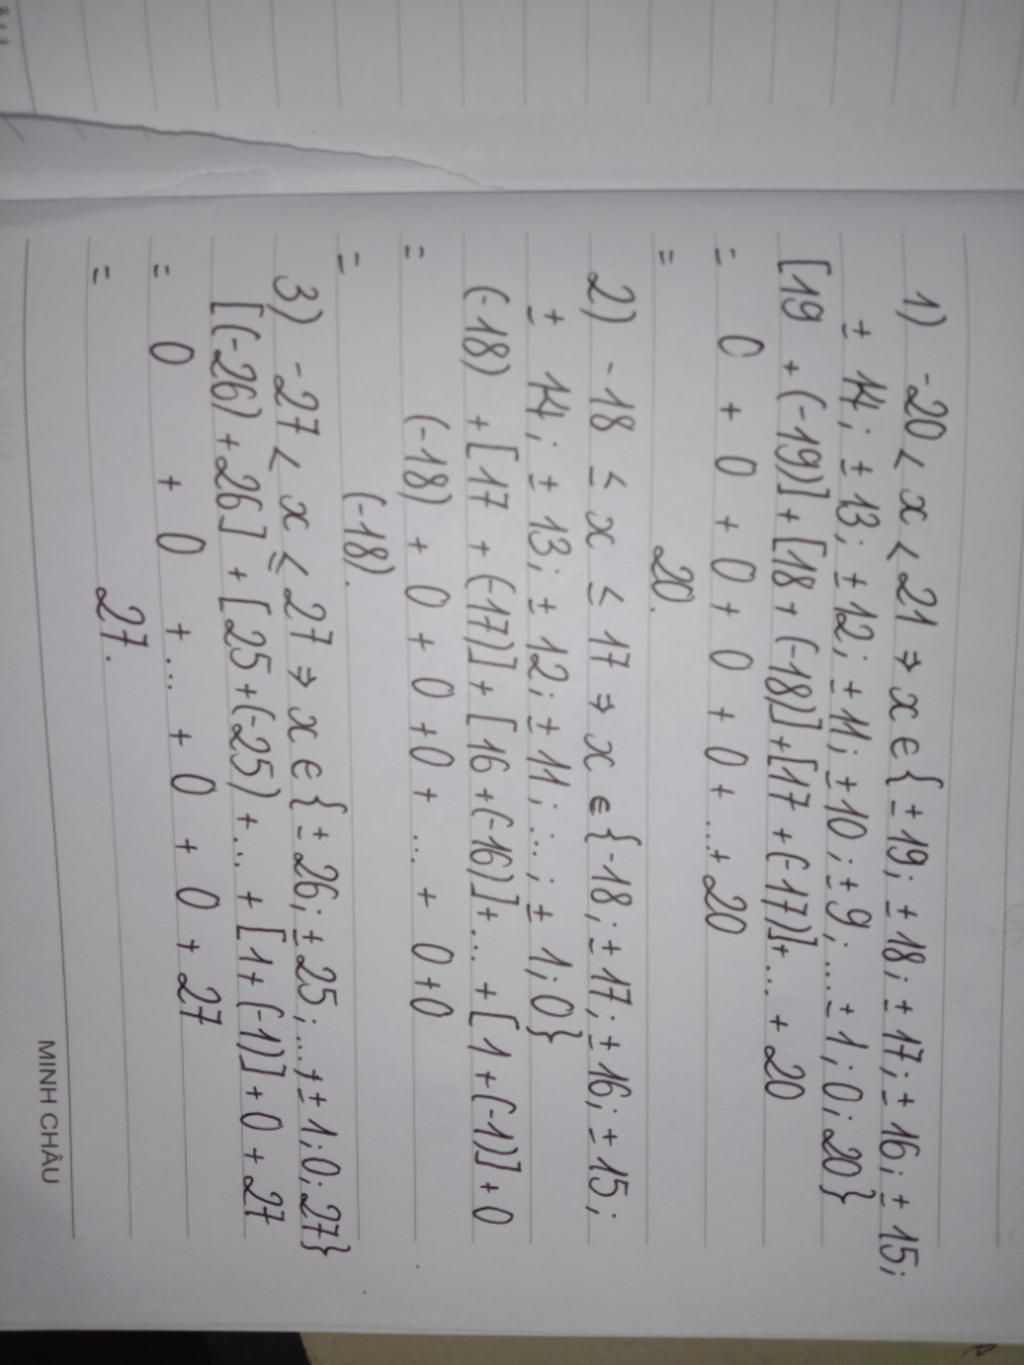 1) -20 < x < 21 ⇒ x ∈ {± 19; ± 18; ± 17; ± 16; ± 15;
± 14; ± 13; ± 12; ± 11; ± 10; ± 9; ... ± 1; 0; 20}
[19 + (-19)] + [18 + (-18)] + [17 + (-17)] + ... + 20
= 0 + 0 + 0 + 0 + 0 + ... + 20
= 20.
2) -18 ≤ x ≤ 17 ⇒ x ∈ {-18; ± 17; ± 16; ± 15;
± 14; ± 13; ± 12; ± 11; ...; ± 1; 0}
(-18) + [17 + (-17)] + [16 + (-16)] + ... + [1 + (-1)] + 0
= (-18) + 0 + 0 + 0 + ... + 0 + 0
= (-18).
3) -27 < x ≤ 27 ⇒ x ∈ {± 26; ± 25; ...; ± 1; 0; 27}
[(-26) + 26] + [25 + (-25) + ... + [1 + (-1)] + 0 + 27
= 0 + 0 + ... + 0 + 0 + 27
= 27.
MINH CHÂU